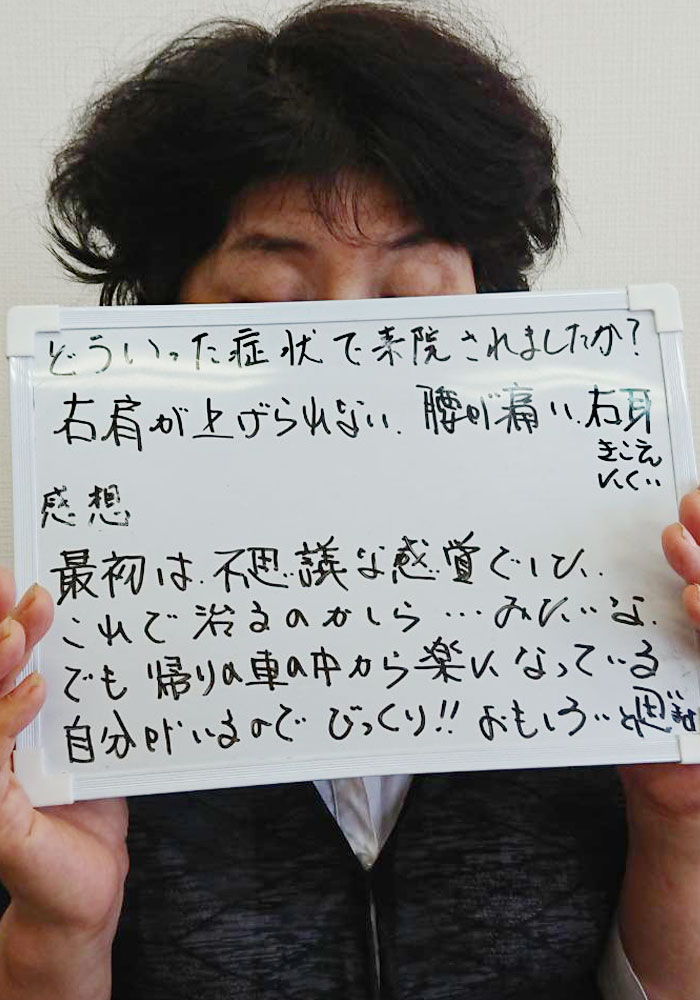 どういった症状で来院されましたか?
右肩が上げられない. 腰が痛い. 右耳
きこえ
にくい
感想
最初は. 不思議な感覚でした.
これで治るのかしら…みたいな.
でも帰りの車の中から楽になっている
自分がいるのでびっくり!! おもしろいと思